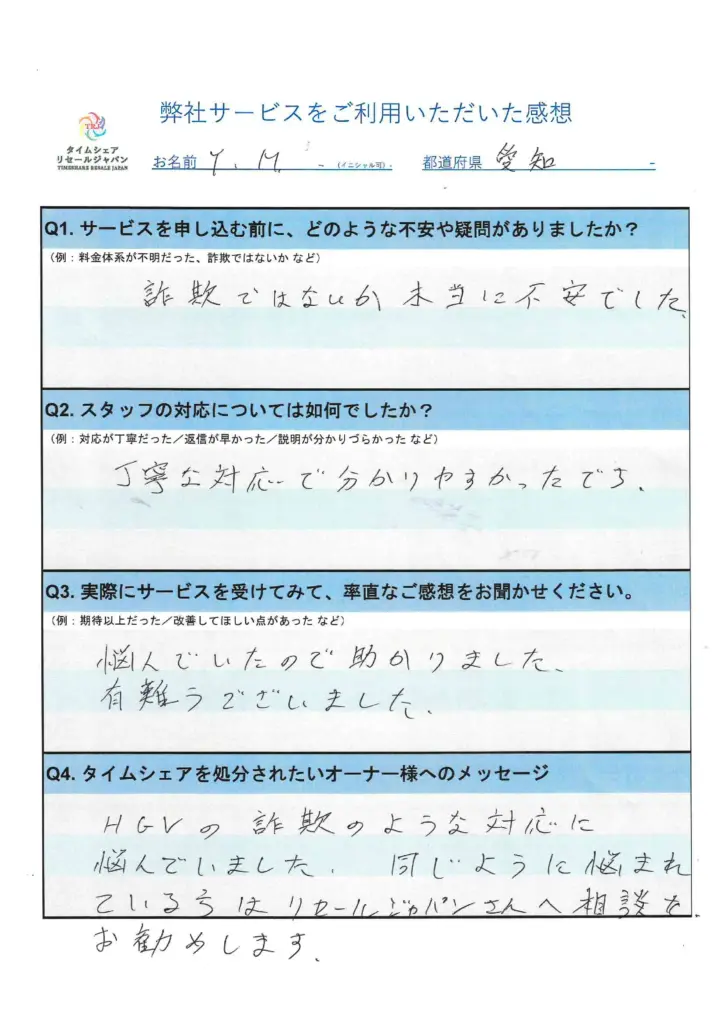 弊社サービスをご利用いただいた感想
TRJ
タイムシェア
リセールジャパン
TIMESHARE RESALE JAPAN
お名前 Y.M. (イニシャル可) 都道府県 愛知
Q1. サービスを申し込む前に、どのような不安や疑問がありましたか？
（例：料金体系が不明だった、詐欺ではないか など）
詐欺ではないか 本当に不安でした、
Q2. スタッフの対応については如何でしたか？
（例：対応が丁寧だった／返信が早かった／説明が分かりづらかった など）
丁寧な対応で分かりやすかったです、
Q3. 実際にサービスを受けてみて、率直なご感想をお聞かせください。
（例：期待以上だった／改善してほしい点があった など）
悩んでいたので助かりました、
有難うございました、
Q4. タイムシェアを処分されたいオーナー様へのメッセージ
HGVの詐欺のような対応に
悩んでいました、 同じように悩まれ
ている方はリセールジャパンさんへ相談を
お勧めします、